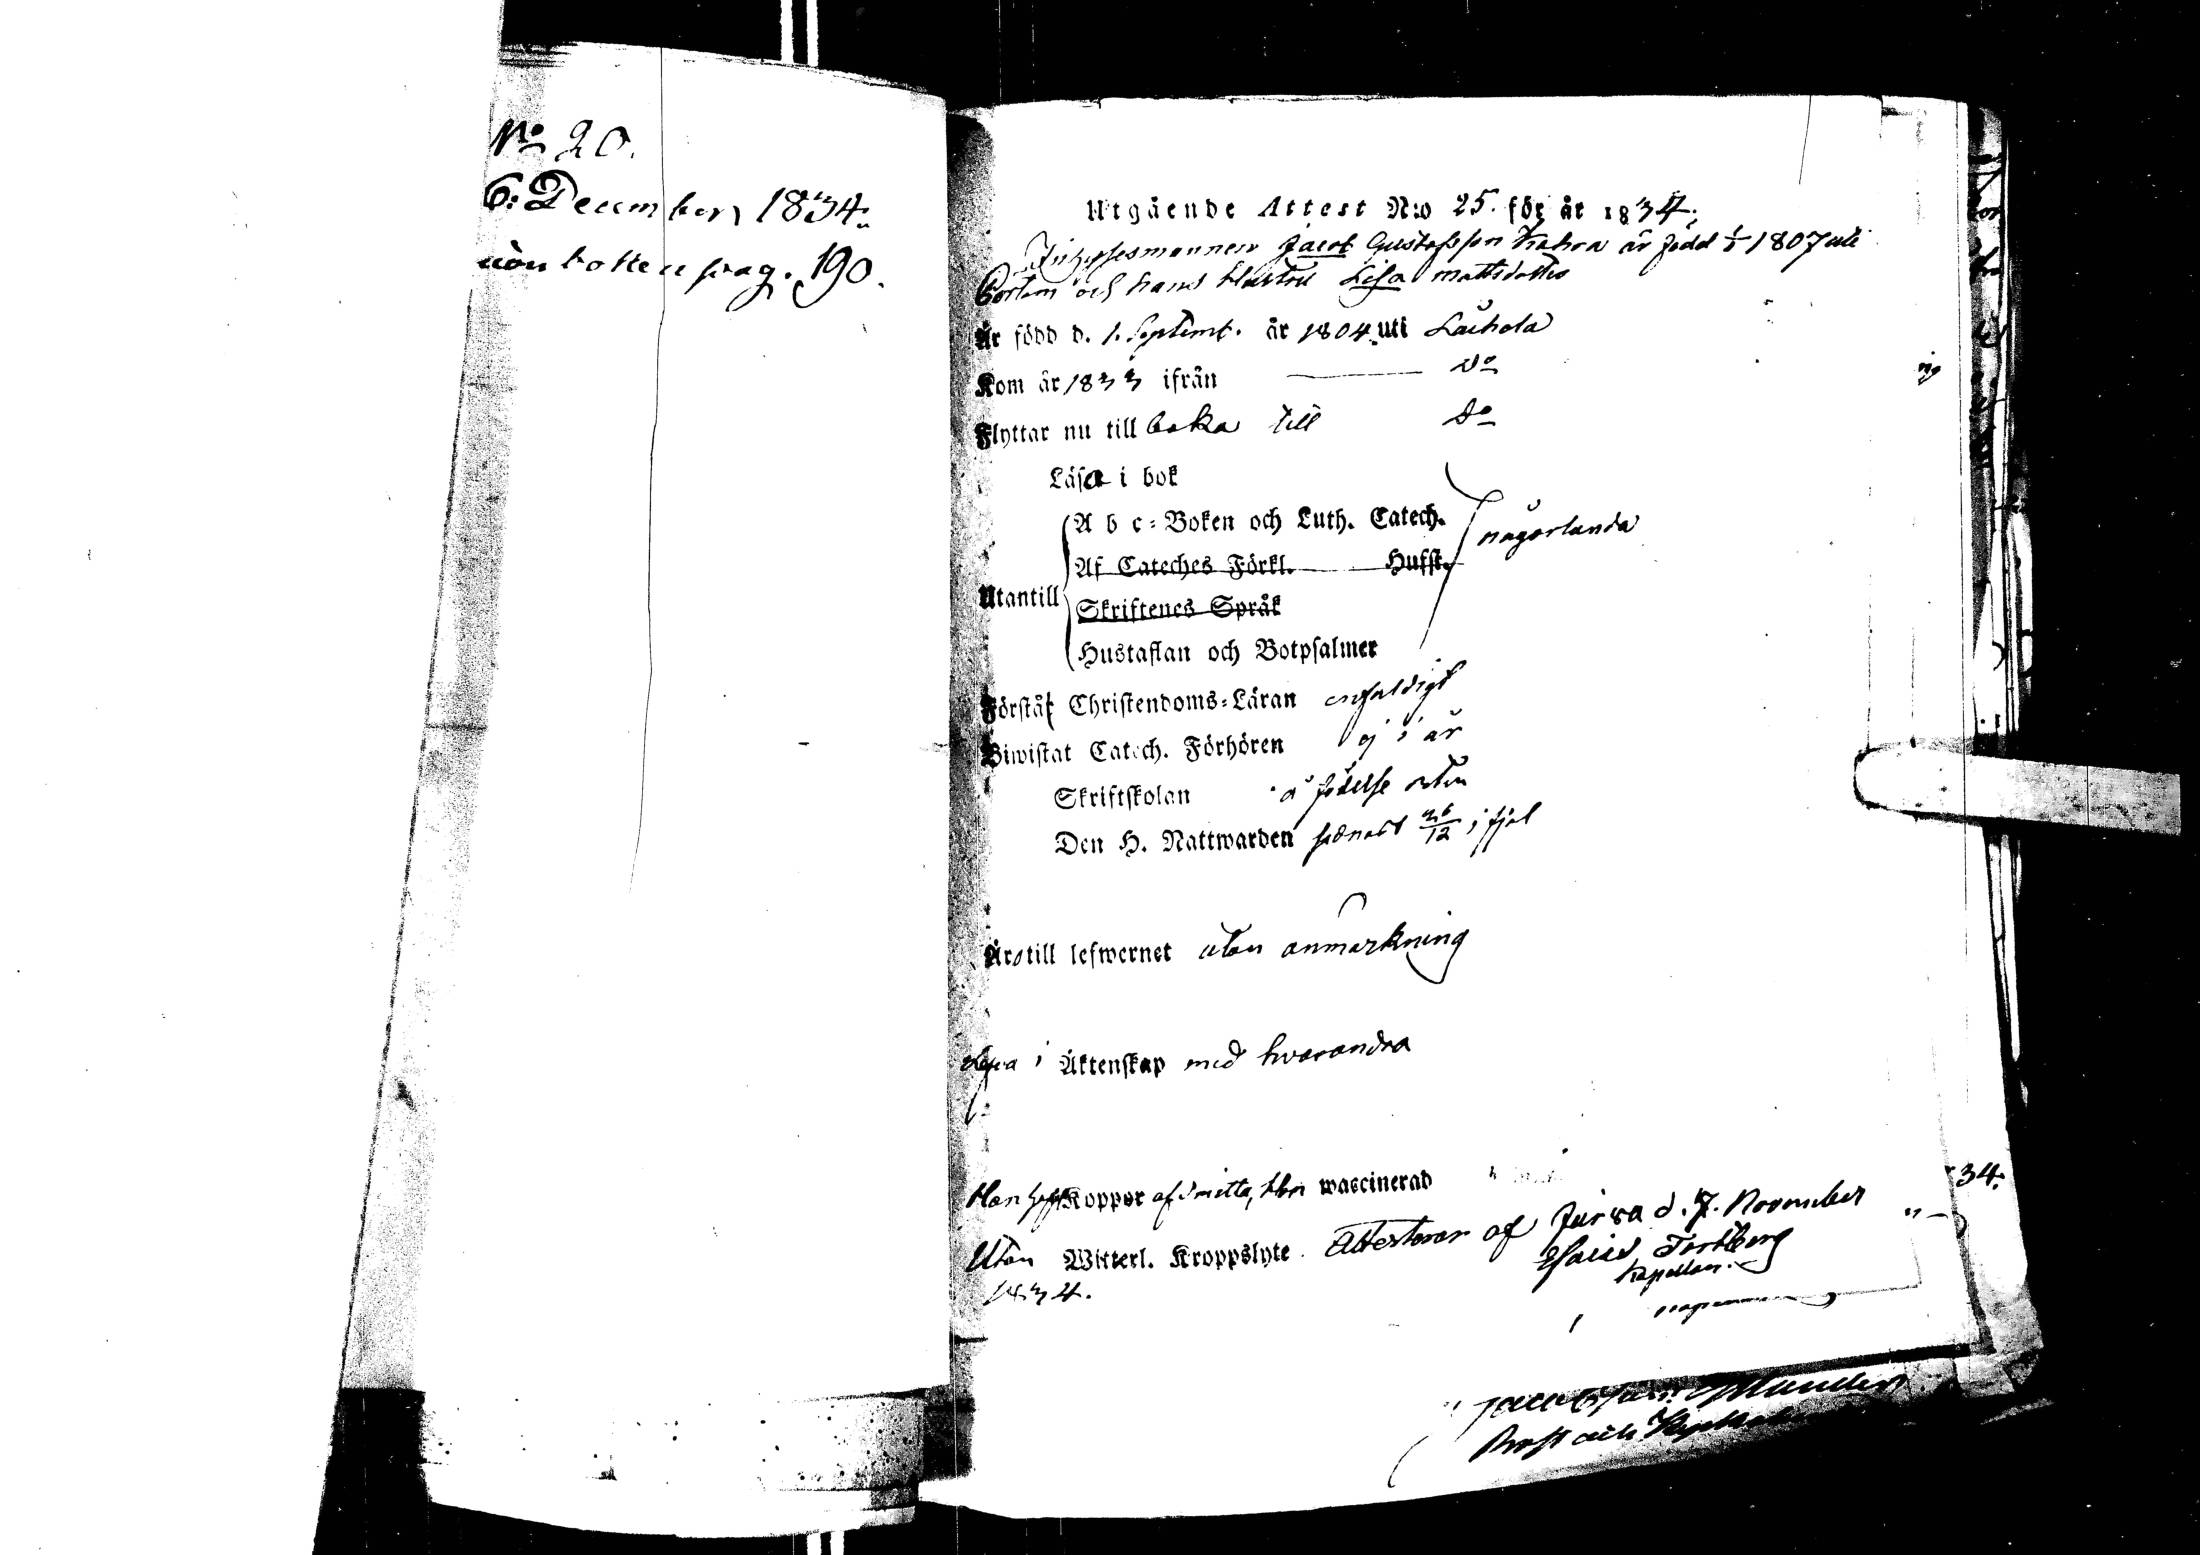 No 20.
6: December 1834.
kotten pag. 190.
Utgående Attest N:o 25. för år 1834.
Inhysesmannen Jacob Gustafsson Krahra är född 1/1 1807 uti
Bortom och hans Hustru Lisa Mattsdotter
Är född d. 1. Septemb. år 1804 uti Laihela
Kom år 1833 ifrån Do
Flyttar nu till baka till Do
Läsa i bok
A b c-Boken och Luth. Catech. någorlunda
Af Cateches Förkl. Hufst.
Utantill
Skriftenes Språk
Hustaflan och Botpsalmer
Förstå Christendoms-Läran enfaldigt
Biwistat Catech. Förhören ej i år
Skriftskolan å födelse orten
Den H. Nattwarden senast 26/12 i fjol
Äro till lefwernet utan anmärkning
Lefva i Äktenskap med hvarandra
Han haft Koppor af smitta, Hon waccinerad
Utan Witterl. Kroppslyte. Attesterar af Jurva d. 7. November
1834.
Esaias Fortberg
Kapellan.
34.
Prost och